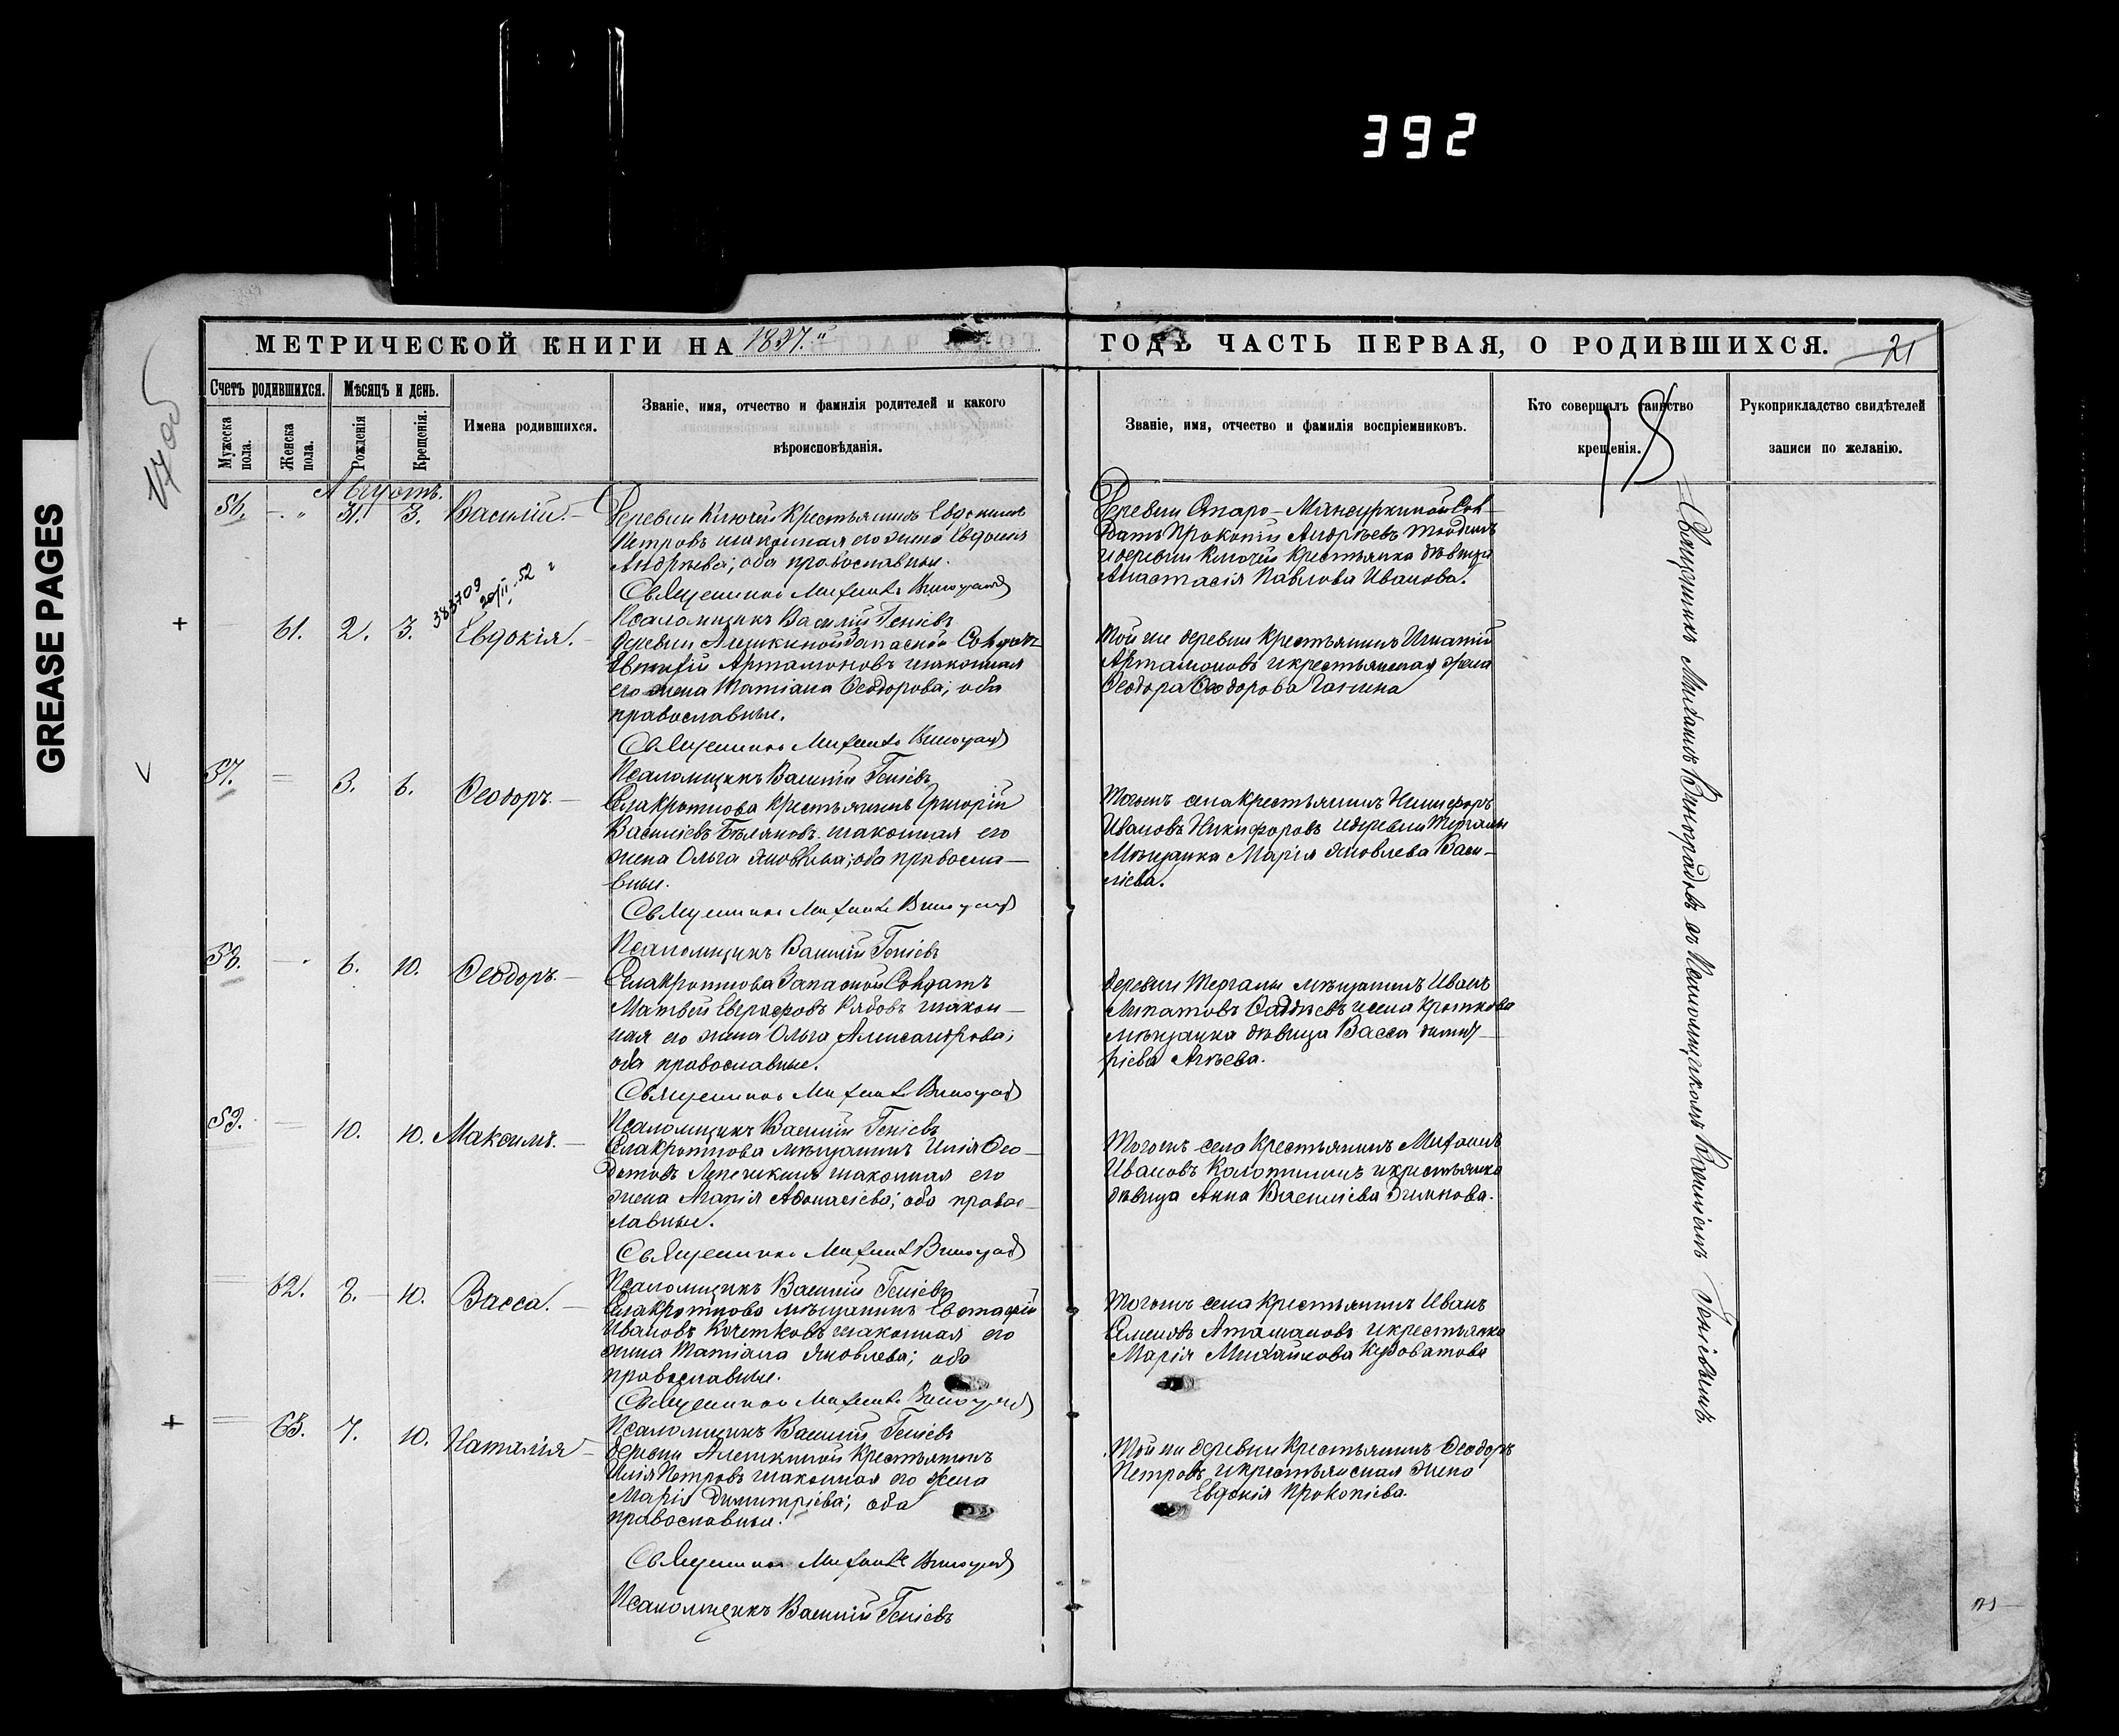 392
GREASE PAGES
МЕТРИЧЕСКОЙ КНИГИ НА
ГОДЪ ЧАСТЬ ПЕРВАЯ, О РОДИВШИХСЯ.
21
18
Счетъ родившихся.
Мѣсяцъ и день.
Мужеска пола.
Женска пола.
Рожденія
Крещенія.
Имена родившихся.
Званіе, имя, отчество и фамилія родителей и какого
вѣроисповѣданія.
Званіе, имя, отчество и фамилія воспріемниковъ.
Кто совершалъ таинство
крещенія.
Рукоприкладство свидѣтелей
записи по желанію.
Августъ.
56. 31. 3. Василій.
Деревни Ключи Крестьянинъ Евдокимъ
Петровъ и законная его жена Евдокія
Андреева; оба православные.
Священникъ Михаилъ Виноградовъ
Псаломщикъ Василій Геніевъ
Деревни Старо-Мансуркиной Сол-
датъ Прокопій Андреевъ
и деревни Ключи крестьянка дѣвица
Анастасія Павлова Иванова.
383709
20/II 52 г
61. 2. 3. Евдокія.
деревни Алешкиной Запасной Солдатъ
Артамоновъ и законная
его жена Татіана Ѳеодорова; оба
православные.
Священникъ Михаилъ Виноградовъ
Псаломщикъ Василій Геніевъ
Той же деревни крестьянинъ Игнатій
Артамоновъ и крестьянская жена
Ѳеодора Ѳеодорова
57. 3. 6. Ѳеодоръ.
Села Кроткова крестьянинъ Григорій
Василіевъ Бѣляновъ и законная его
жена Ольга Яковлева; оба правосла-
вные.
Священникъ Михаилъ Виноградовъ
Псаломщикъ Василій Геніевъ
Тогожъ села крестьянинъ Никифоръ
Ивановъ Никифоровъ и деревни Терганы
мѣщанка Марія Яковлева Васи-
ліева.
58. 6. 10. Ѳеодоръ.
Села Кроткова Запасной Солдатъ
Матвей Евграфовъ Рябовъ и закон-
ная его жена Ольга Александрова;
оба православные.
Священникъ Михаилъ Виноградовъ
Псаломщикъ Василій Геніевъ
деревни Терганы мѣщанинъ Иванъ
Липатовъ Фаддѣевъ и села Кроткова
мѣщанка дѣвица Васса Димит-
ріева Агѣева.
59. 10. 10. Максимъ.
Села Кроткова мѣщанинъ Илія Ѳео-
дотовъ и законная его
жена Марія Аѳонасіева; оба правос-
лавные.
Священникъ Михаилъ Виноградовъ
Псаломщикъ Василій Геніевъ
Тогожъ села Крестьянинъ Михаилъ
Ивановъ и крестьянка
дѣвица Анна Василіева Зимнова.
62. 8. 10. Васса.
Села Кроткова мѣщанинъ Евстафій
Ивановъ Кочетковъ и законная его
жена Татіана Яковлева; оба
православные.
Священникъ Михаилъ Виноградовъ
Псаломщикъ Василій Геніевъ
Тогожъ села крестьянинъ Иванъ
Семеновъ Атамановъ и крестьянка
Марія Михайлова Курватова
63. 7. 10. Наталія
деревни Алешкиной Крестьянинъ
Илія Петровъ и законная его жена
Марія Димитріева; оба
православные.
Священникъ Михаилъ Виноградовъ
Псаломщикъ Василій Геніевъ
Той же деревни Крестьянинъ Ѳеодоръ
Петровъ и крестьянская жена
Евдокія Прокопіева.
Священникъ Михаилъ Виноградовъ съ Псаломщикомъ Василіемъ Геніевымъ.